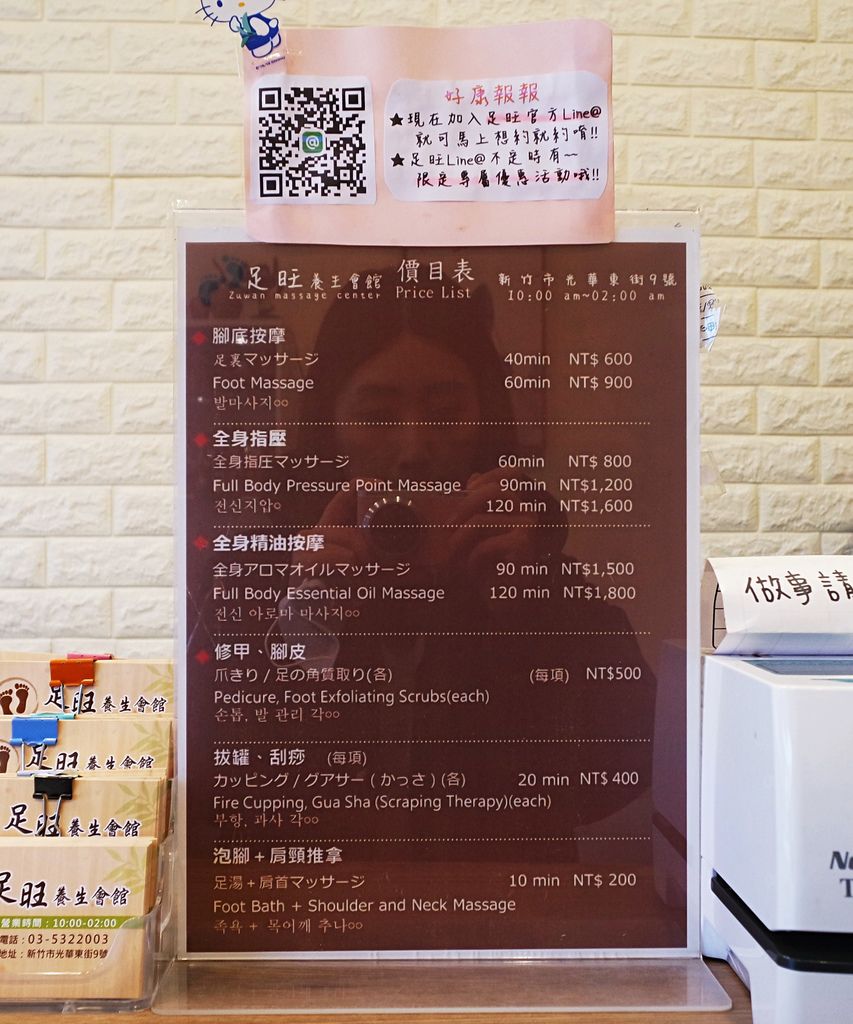 好康報報
★現在加入足旺官方Line@
就可馬上想約就約唷!!
★足旺Line@不定時有~
限定專屬優惠活動哦!!
足旺養生會館 價目表 新竹市光華東街9號
Zuwan massage center Price List 10:00 am~02:00 am
腳底按摩
足裏マッサージ 40min NT$ 600
Foot Massage 60min NT$ 900
발마사지○○
全身指壓
全身指圧マッサージ 60min NT$ 800
Full Body Pressure Point Massage 90min NT$1,200
전신지압○ 120 min NT$1,600
全身精油按摩
全身アロマオイルマッサージ 90 min NT$1,500
Full Body Essential Oil Massage 120 min NT$1,800
전신 아로마 마사지○○
修甲、腳皮
爪きり / 足の角質取り(各) (每項) NT$500
Pedicure, Foot Exfoliating Scrubs(each)
손톱, 발 관리 각○○
拔罐、刮痧 (每項)
カッピング / グアサー ( かっさ ) (各) 20 min NT$ 400
Fire Cupping, Gua Sha (Scraping Therapy)(each)
부항, 과사 각○○
泡腳 + 肩頸推拿
足湯 + 肩首マッサージ 10 min NT$ 200
Foot Bath + Shoulder and Neck Massage
족욕 + 목이깨 추나○○
足旺養生會館
足旺養生會館
足旺養生會館
足旺養生會館
營業時間：10:00-02:00
電話：03-5322003
地址：新竹市光華東街9號
做事請